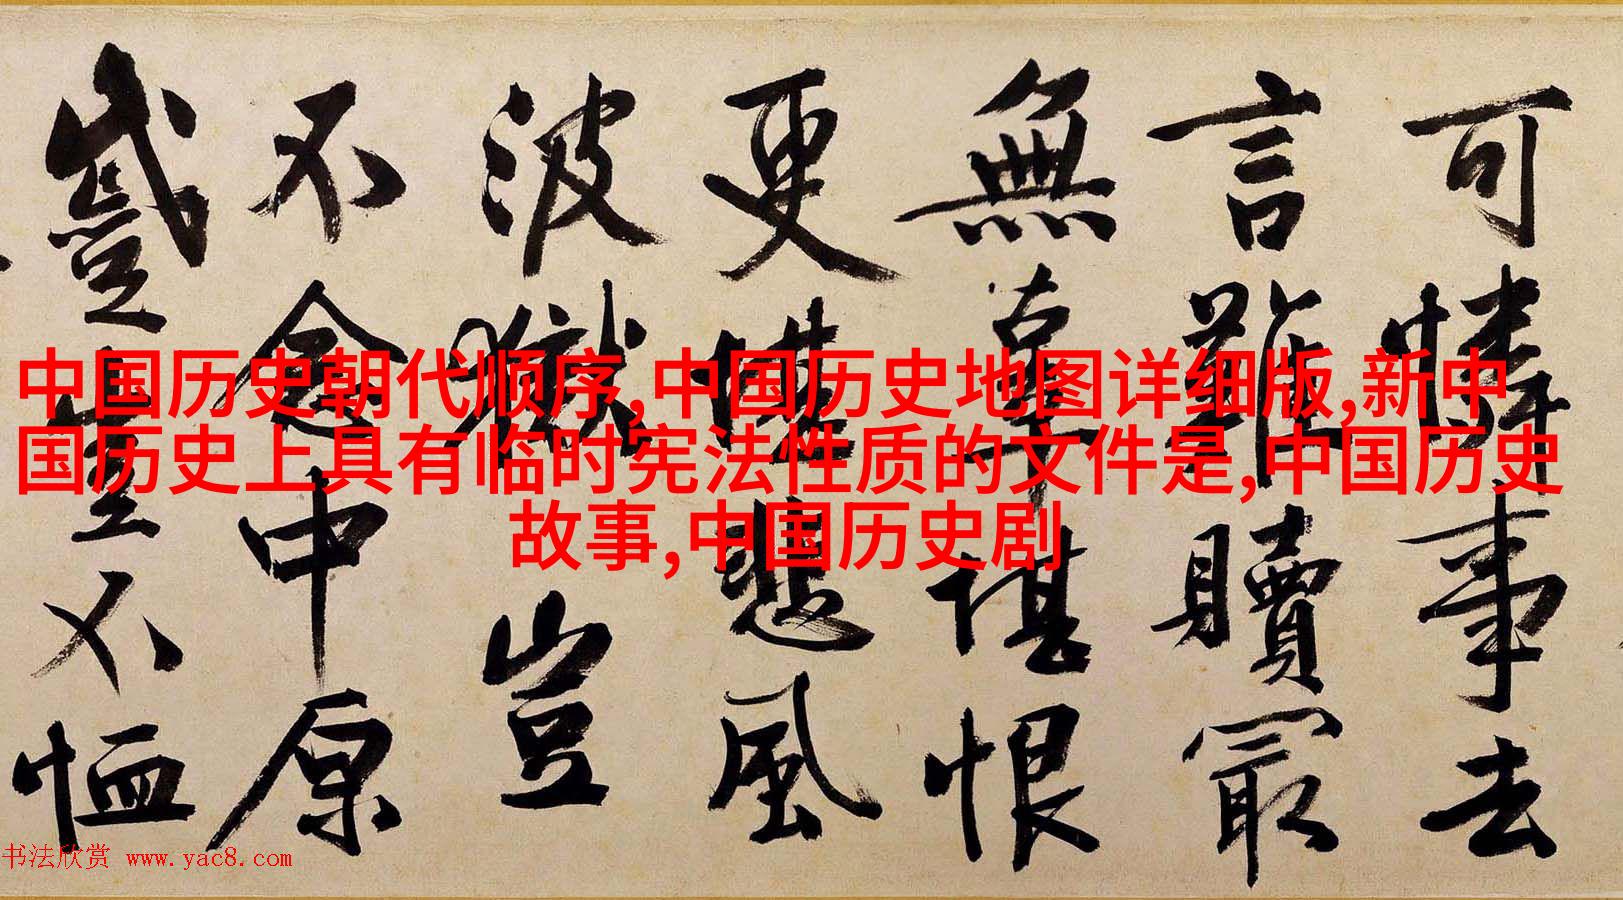 可憐事去
言難贖最
無辜堪恨
更堪悲風
波獄豈
不念中原
蹙豈不恤
中国历史朝代顺序,中国历史地图详细版,新中
国历史上具有临时宪法性质的文件是,中国历史
故事,中国历史剧
书法欣赏 www.yac8.com